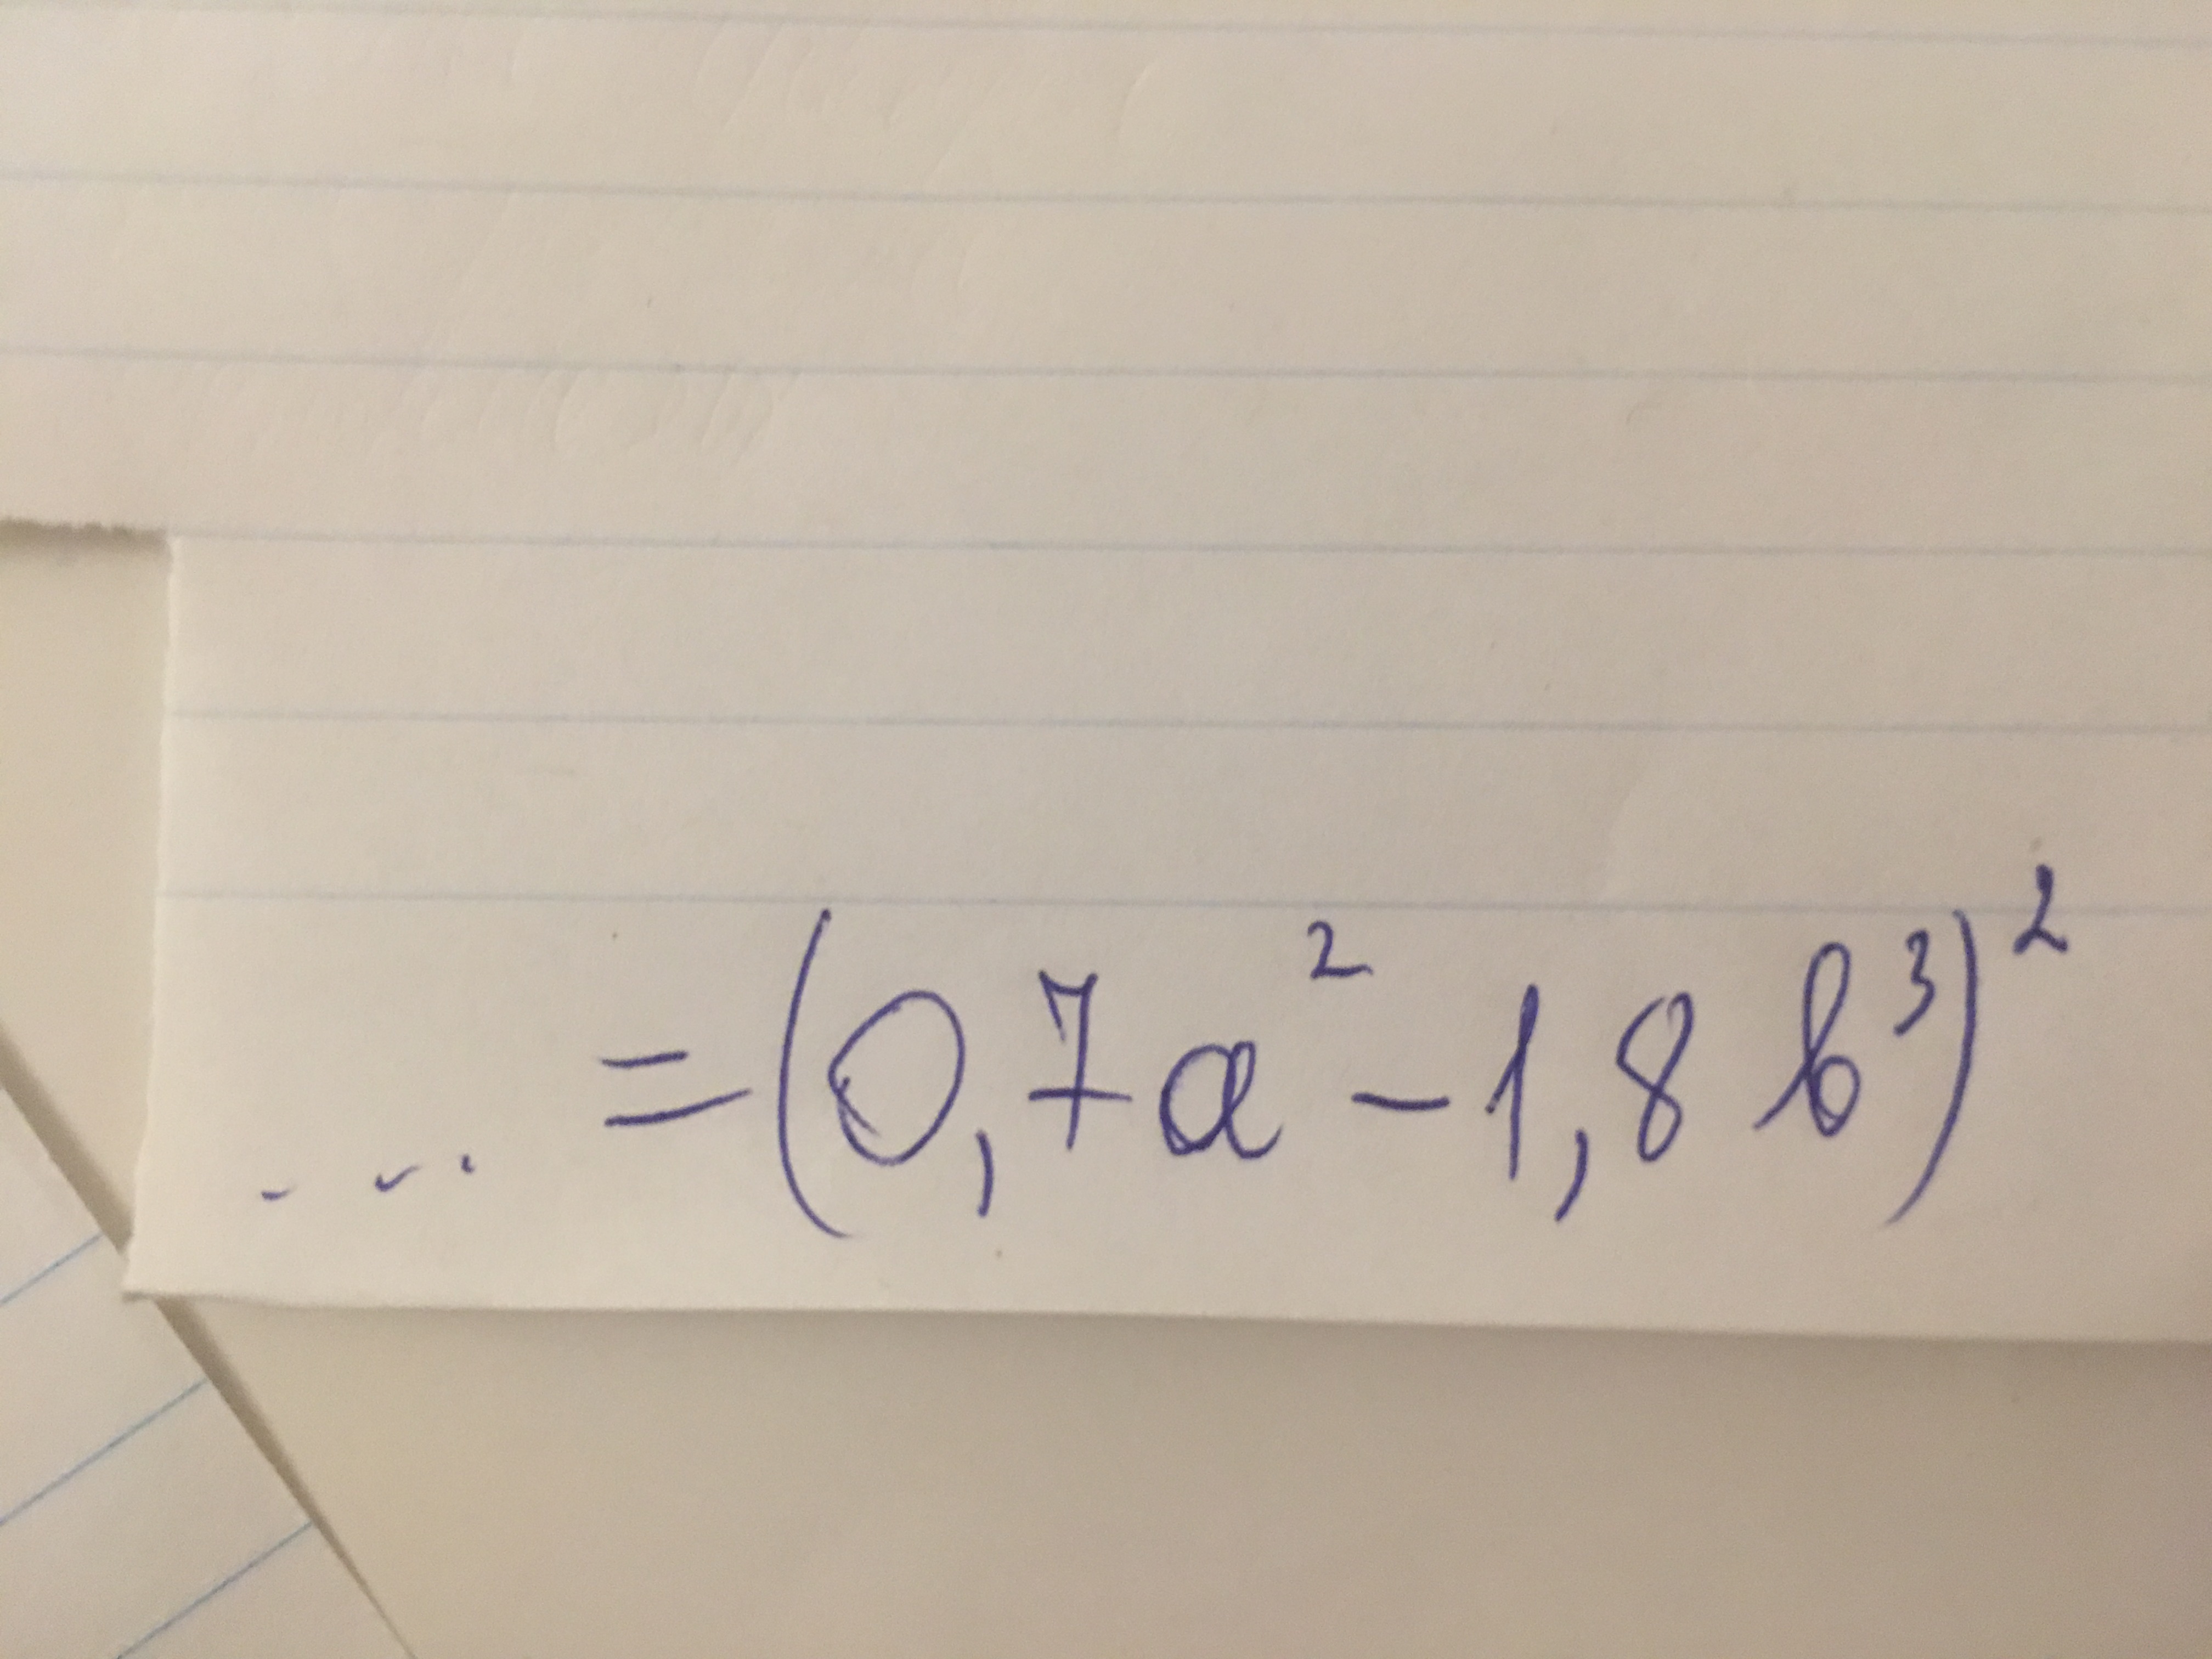 ... = (0,7a² - 1,8b³)²